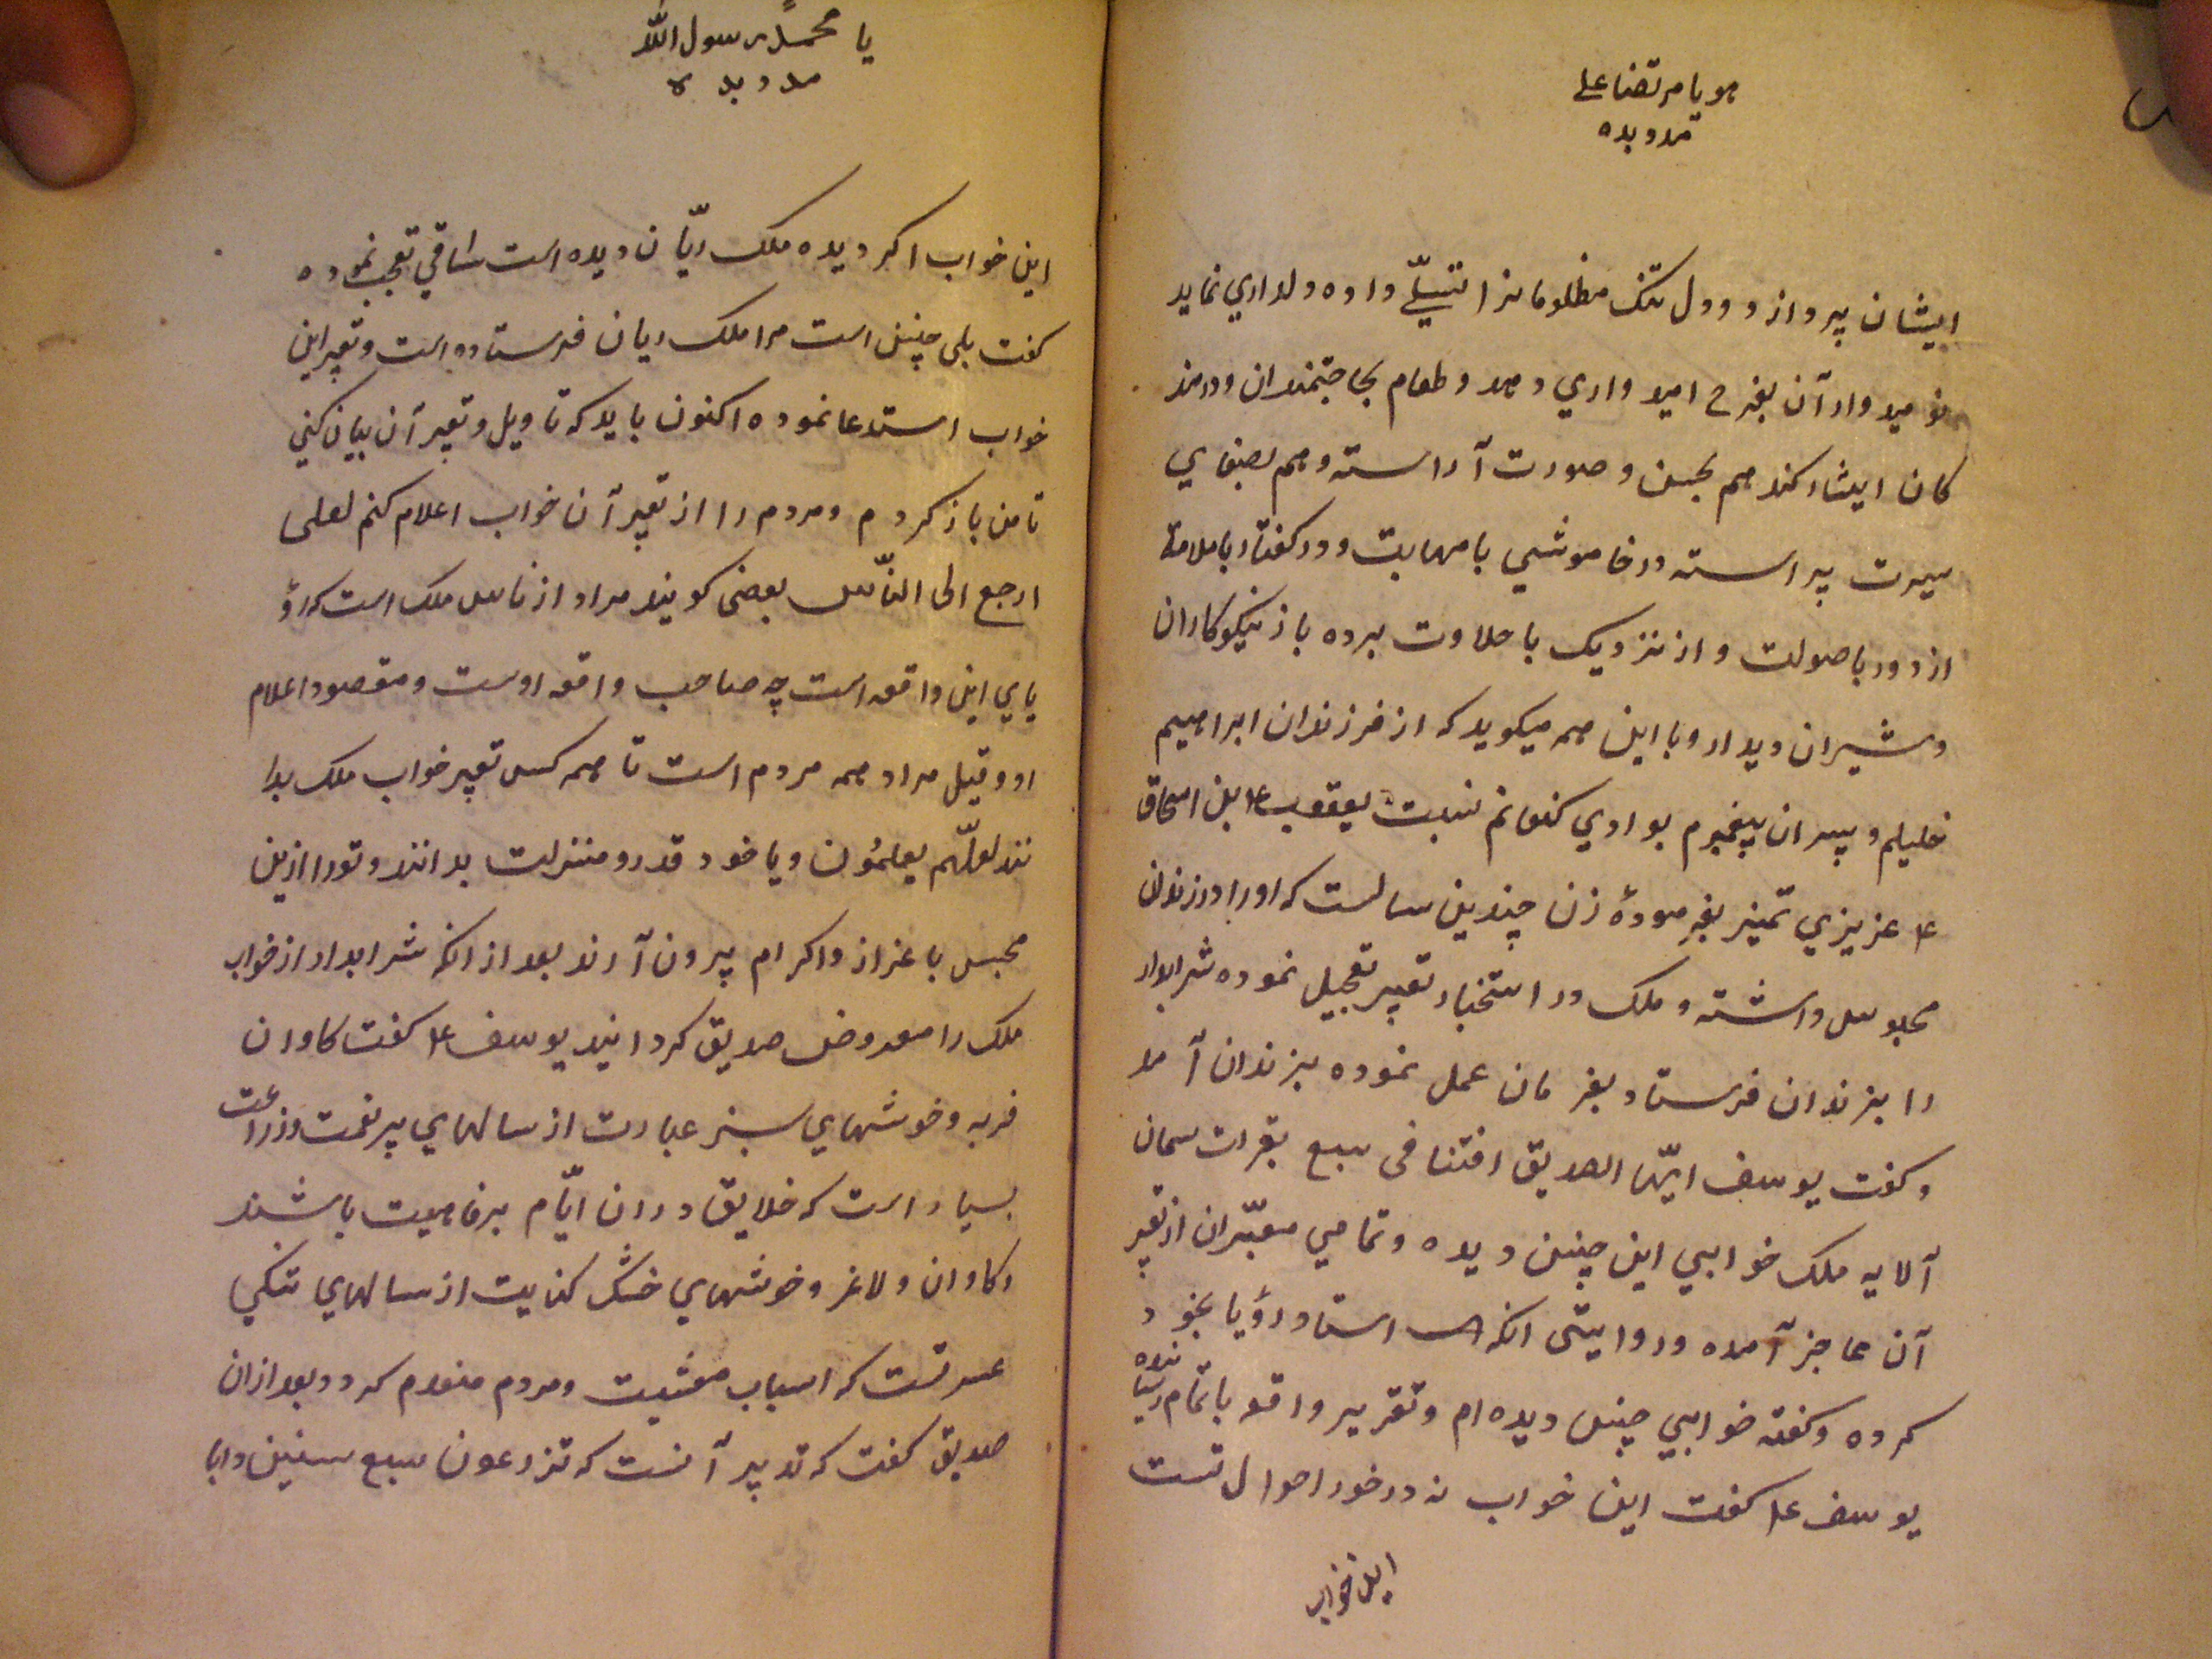 هو یا مرتضا علی
مدد بده
ایشان پردازد و دل تنک مظلومانرا تسلّی داده دلداری نماید
نومیدوارآن بفرح امیدواری دهد و طعام بحاجتمندان و درمند
کان ایثار کند هم بحسن و صورت آراسته و هم بصفای
سیرت پیراسته در خاموشی با مهابت و در کفتار با ملامة
از دور با صولت و از نزدیک با حلاوت برده باز نیکوکاران
وشیران دیدار و با این همه میکوید که از فرزندان ابراهیم
خلیلم و پسران پیغمبرم بوادی کنعانم نسبت یعقوب ء ابن اسحاق
ء عزیزی تمیز بفرمودهٔ زن چندین سالست که اورا در زندان
محبوس داشته و ملک در استخبار تعبیر تعجیل نموده شرابدار
را بزندان فرستاد بفرمان عمل نموده بزندان آمد
و کفت یوسف ایّها الصدیق افتنا فی سبع بقرات سمان
آلایه ملک خوابی این چنین دیده و تمامی معبّران از تعبیر
آن عاجز آمده و روایتی انکه اسناد رؤیا بخود
کرده و کفته خوابی چنین دیده ام و تقریر واقعه باتمام رسانیده
یوسف ء کفت این خواب نه در خور احوال تست
این خواب
یا محمد رسول الله
مدد بده
این خواب اکر دیده ملک ریّان دیده است ساقی تعجب نموده
کفت بلی چنین است مرا ملک ریان فرستاده است و تعبیر این
خواب استدعا نموده اکنون باید که تاویل و تعبیر آن بیان کنی
تا من باز کردم و مردم را از تعبیر آن خواب اعلام کنم لعلی
ارجع الی النّاس بعضی کویند مراد از ناس ملک است که رؤ
یای این واقعه است چه صاحب واقعه اوست و مقصود اعلام
او و قیل مراد همه مردم است تا همه کس تعبیر خواب ملک بدا
نند لعلّهم یعلمُون و یا خود قدر و منزلت بدانند و تورا ازین
محبس باعزاز و اکرام بیرون آرند بعد از انکه شرابدار از خواب
ملک را معروض صدیق کردانید یوسف ء کفت کاوان
فربه و خوشهای سبز عبارت از سالهای پر نعمت و زراعت
بسیار است که خلایق دران ایّام برفاهیت باشند
و کاوان و لاغر و خوشهای خشک کنایت از سالهای تنکی
عسرتست که اسباب معیشت و مردم منعدم کردد و بعد ازان
صدیق کفت که تدبیر آنست که تزرعون سبع سنین دابا